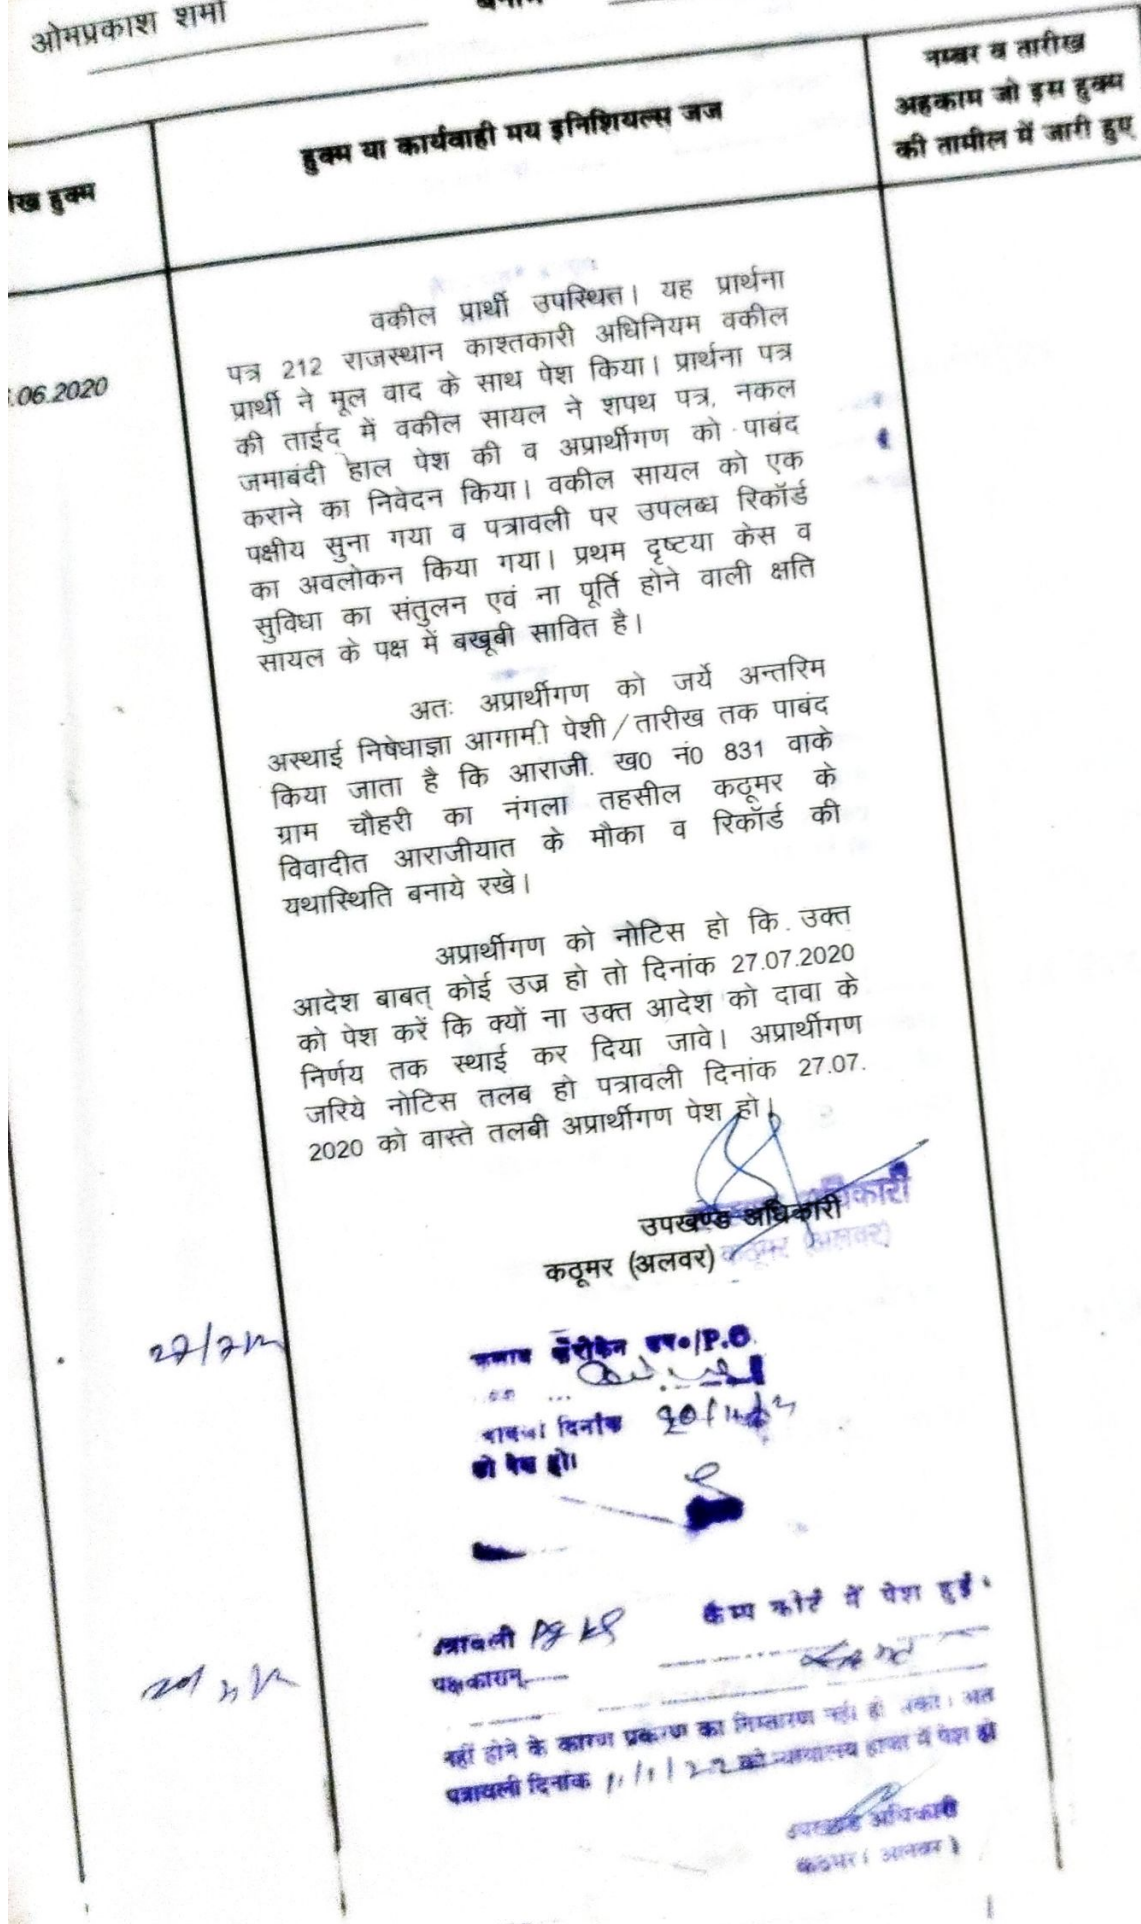 ओमप्रकाश शर्मा
हुक्म या कार्यवाही मय इनिशियल्स जज
नम्बर व तारीख
अहकाम जो इस हुक्म
की तामील में जारी हुए
हुक्म
.06.2020
वकील प्रार्थी उपस्थित। यह प्रार्थना
पत्र 212 राजस्थान काश्तकारी अधिनियम वकील
प्रार्थी ने मूल वाद के साथ पेश किया। प्रार्थना पत्र
की ताईद में वकील सायल ने शपथ पत्र, नकल
जमाबंदी हाल पेश की व अप्रार्थीगण को पाबंद
कराने का निवेदन किया। वकील सायल को एक
पक्षीय सुना गया व पत्रावली पर उपलब्ध रिकॉर्ड
का अवलोकन किया गया। प्रथम दृष्टया केस व
सुविधा का संतुलन एवं ना पूर्ति होने वाली क्षति
सायल के पक्ष में बखूबी सावित है।
अतः अप्रार्थीगण को जर्ये अन्तरिम
अस्थाई निषेधाज्ञा आगामी पेशी/तारीख तक पाबंद
किया जाता है कि आराजी. ख0 नं0 831 वाके
ग्राम चौहरी का नंगला तहसील कठूमर के
विवादीत आराजीयात के मौका व रिकॉर्ड की
यथास्थिति बनाये रखे।
अप्रार्थीगण को नोटिस हो कि उक्त
आदेश बाबत् कोई उज्र हो तो दिनांक 27.07.2020
को पेश करें कि क्यों ना उक्त आदेश को दावा के
निर्णय तक स्थाई कर दिया जावे। अप्रार्थीगण
जरिये नोटिस तलब हो पत्रावली दिनांक 27.07.
2020 को वास्ते तलबी अप्रार्थीगण पेश हो।
उपखण्ड अधिकारी
कठूमर (अलवर)
कठूमर (अलवर)
/P.O.
दिनांक
को पेश हो।
पत्रावली कैम्प कोर्ट में पेश हुई।
पक्षकारान्
नहीं होने के कारण प्रकरण का निस्तारण नहीं हो सका। अत
पत्रावली दिनांक 11/1/22 को न्यायालय हाजा में पेश हो
उपखण्ड अधिकारी
कठूमर (अलवर)